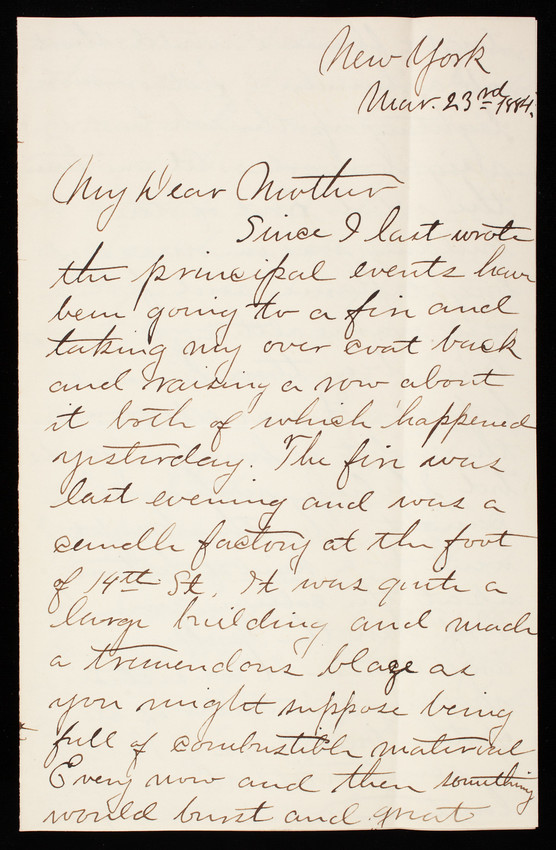 New York
Mar. 23rd 1884.
My Dear Mother
Since I last wrote
the principal events have
been going to a fire and
taking my over coat back
and raising a row about
it both of which happened
yesterday. The fire was
last evening and was a
candle factory at the foot
of 14th St. It was quite a
large building and made
a tremendous blaze as
you might suppose being
full of combustible material
Every now and then something
would burst and great